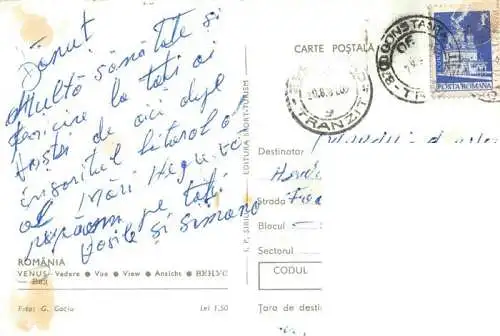 Dănuț
Multă sănătate și
fericire la toți ai
voștri de aici după
însoritul litoral
al Mării Negre vă
pe toți
Vasile și Simona
ROMÂNIA
VENUS – Vedere ● Vue ● View ● Ansicht ● ВЕНУС
Foto: G. Gaciu
Lei 1,50
EDITURA SPORT-TURISM
CARTE POȘTALĂ
CONSTAN
POSTA ROMANA
TRANZIT
9
Destinatar
Strada
Blocul
Sectorul
CODUL
Țara de desti